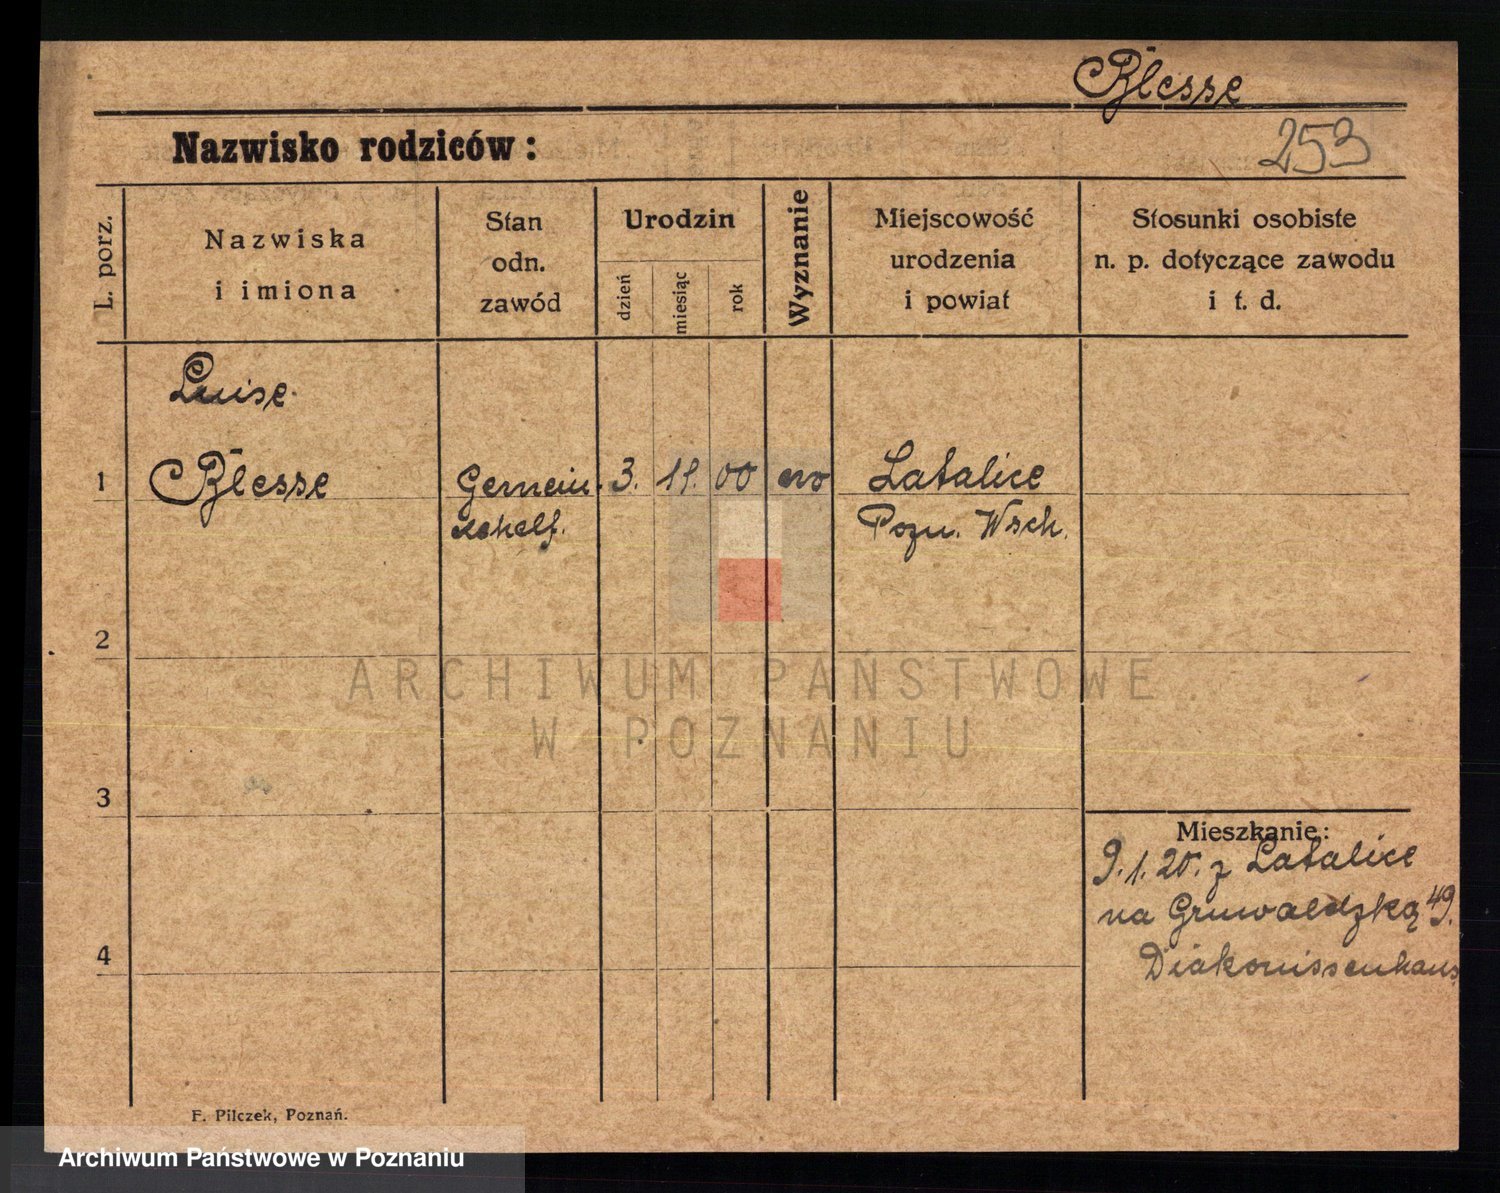 Blesse
Nazwisko rodziców:
253
L. porz.
Nazwiska
i imiona
Stan
odn.
zawód
Urodzin
dzień
miesiąc
rok
Wyznanie
Miejscowość
urodzenia
i powiat
Stosunki osobiste
n. p. dotyczące zawodu
i t. d.
Luise
1 Blesse 3. 11. 00 ev Latalice
Pozn. Wsch.
2
ARCHIWUM PAŃSTWOWE
W POZNANIU
3
Mieszkanie:
9.1.20. z Latalice
na Grunwaldzką 49.
4
Diakonissenhaus
F. Pilczek, Poznań.
Archiwum Państwowe w Poznaniu